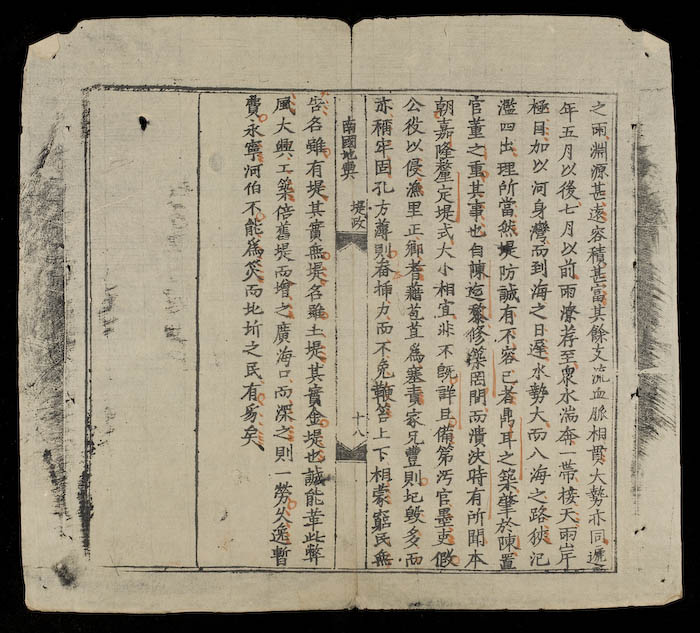 之雨淵源甚遠容積甚富其餘支流血脈相貫大勢亦同遞
年五月以後七月以前雨潦荐至衆水湍奔一帶接天兩岸
極目加以河身灣而到海之日遲水勢大而入海之路狹汜
濫四出理所當然堤防誠有不容已者鼎耳之築肇於陳置
官董之重其事也自陳迄黎修築罔間而潰決時有所聞本
朝嘉隆釐定堤式大小相宜非不旣詳且備第汚官墨吏假
公役以侵漁里正鄉耆藉苞苴爲塞責家兄豐則圯毀多而
亦稱牢固孔方薄則畚揷力而不免鞭笞上下相蒙窮民無
告名雖有堤其實無堤名雖土堤其實金堤也誠能革此弊
風大興工築倍舊堤而增之廣海口而深之則一勞久逸暫
費永寧河伯不能爲災而地圻之民有瘳矣
南國地輿
堤政
十八